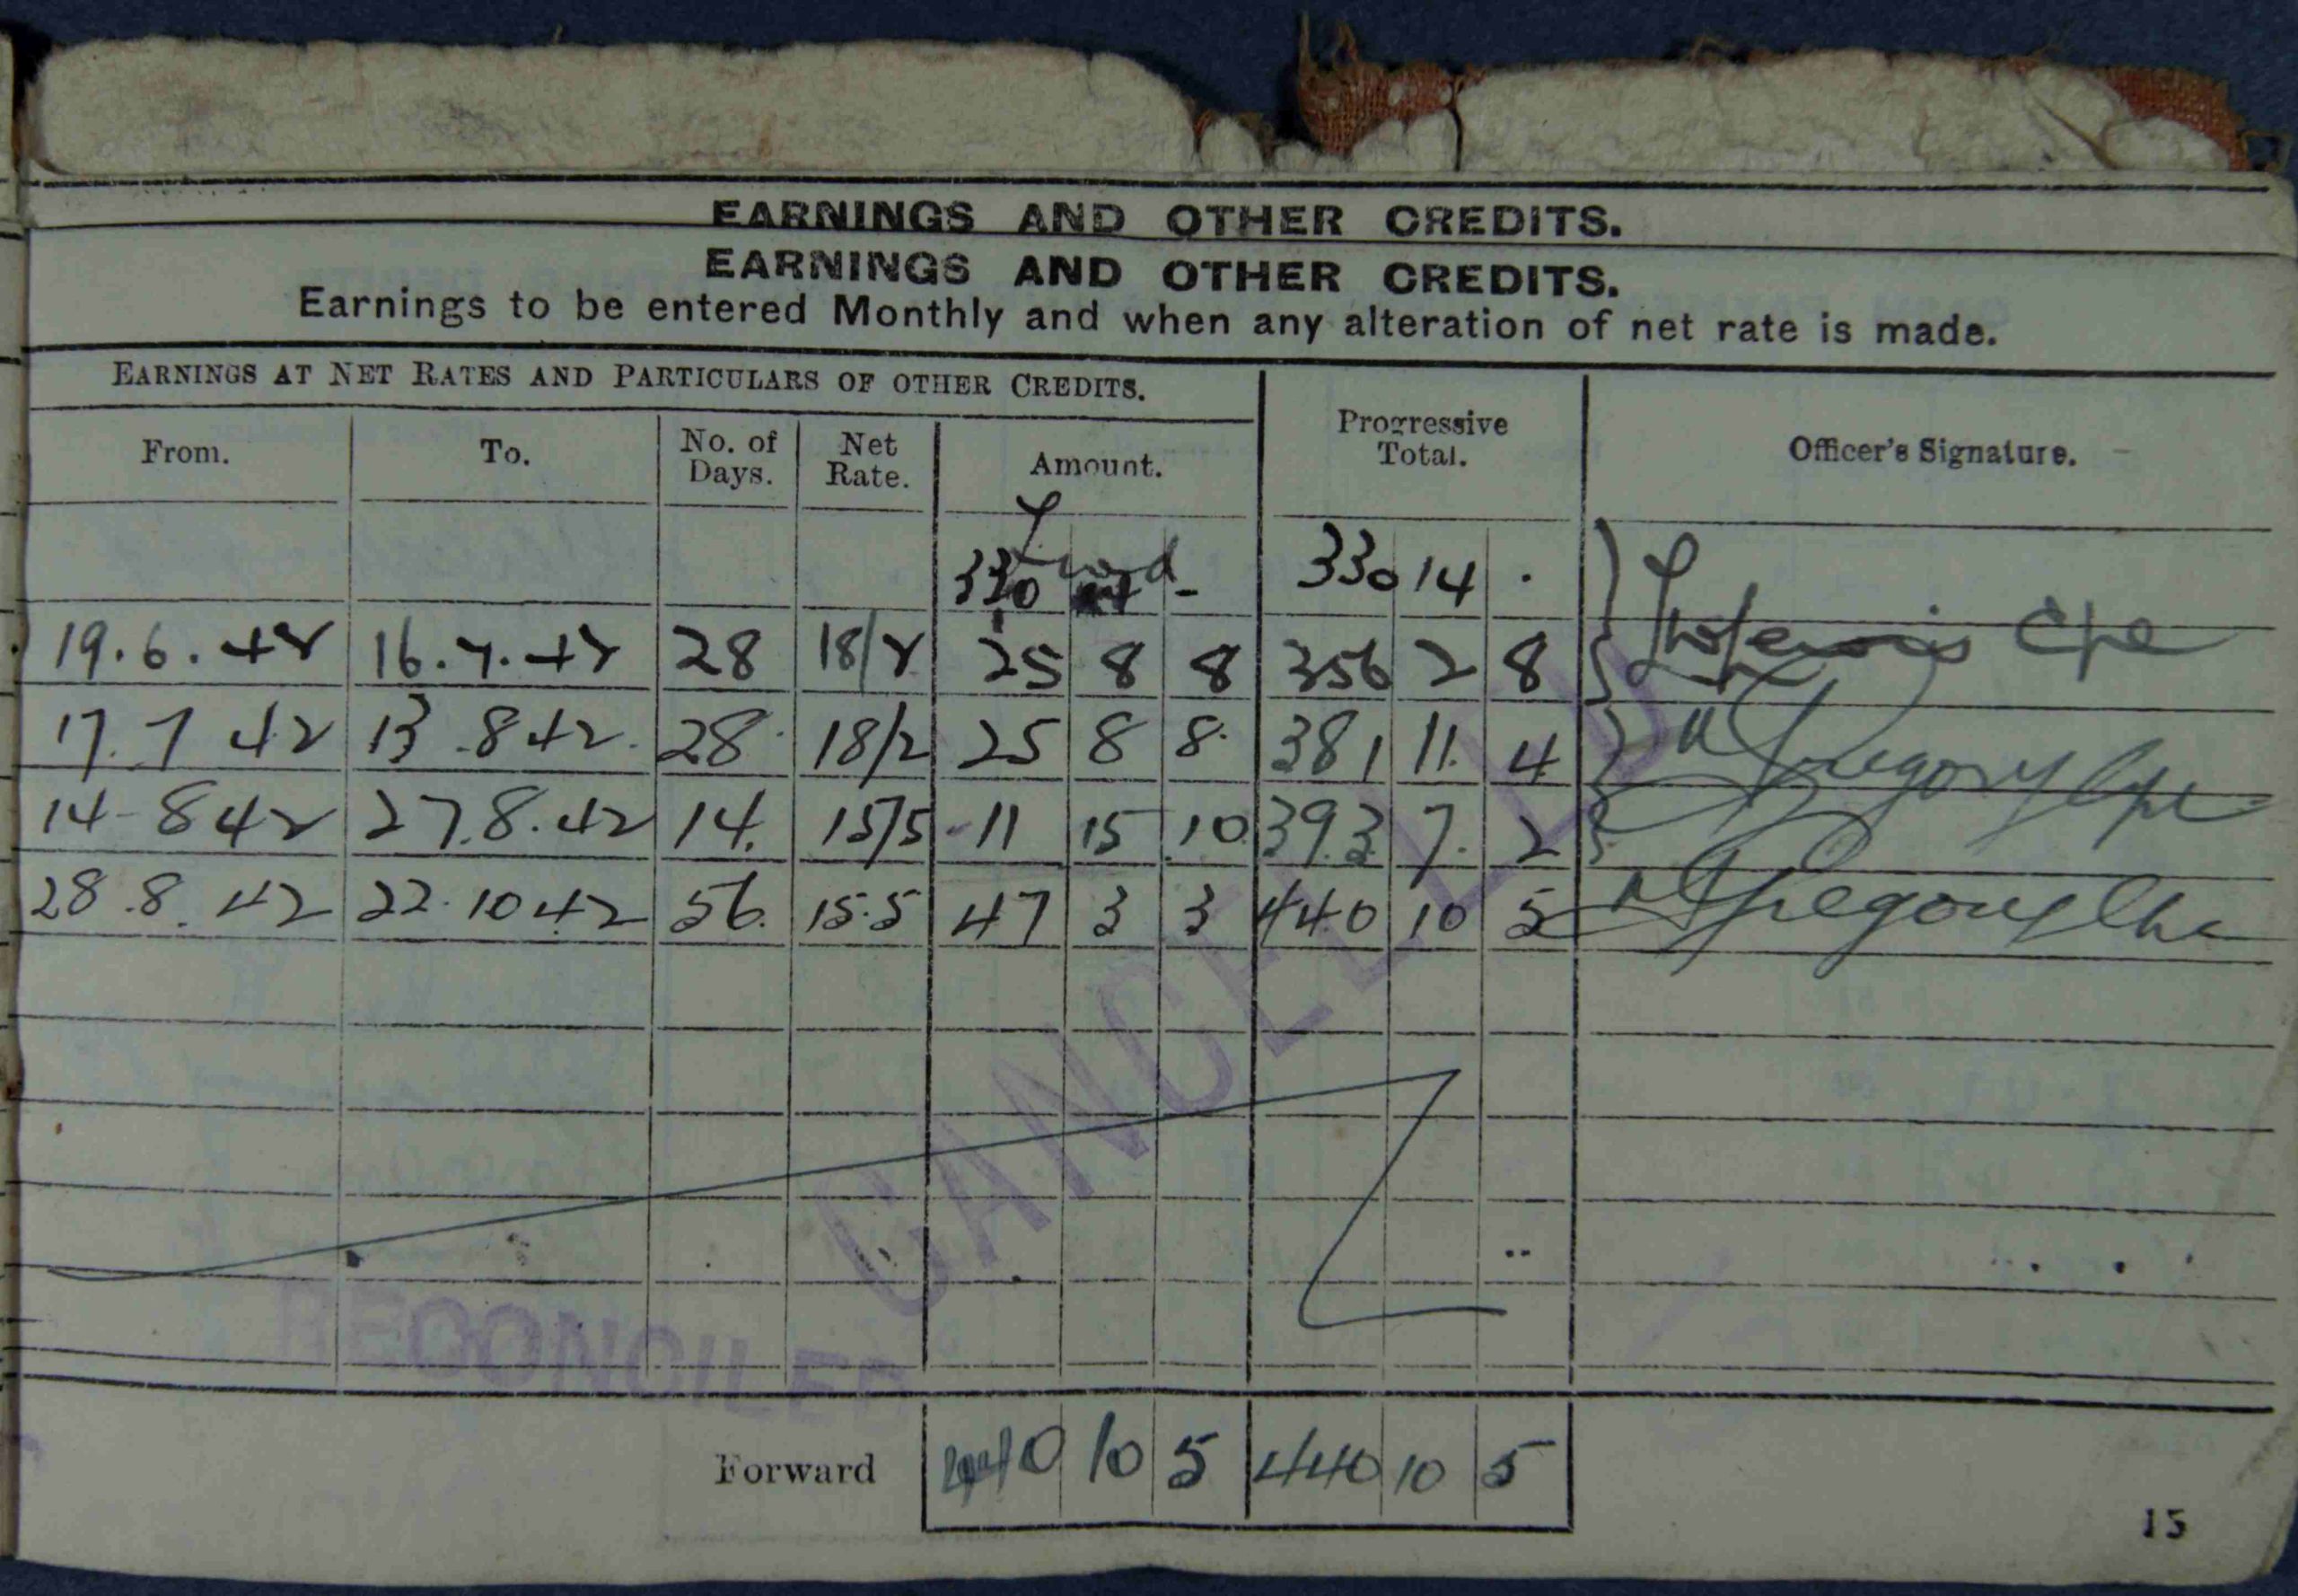 EARNINGS AND OTHER CREDITS.
EARNINGS AND OTHER CREDITS.
Earnings to be entered Monthly and when any alteration of net rate is made.
EARNINGS AT NET RATES AND PARTICULARS OF OTHER CREDITS.
From. To. No. of Days. Net Rate. Amount. Progressive Total. Officer's Signature.
330 - 330 14 .
19.6.42 16.7.42 28 18/2 25 8 8 356 2 8
17.7 42 13.8 42. 28 18/2 25 8 8. 381 11. 4 Gregory
14-8 42 27.8.42 14. 15/5 11 15 10 393 7. 2
28.8.42 22.10 42 56. 15.5 47 3 3 440 10 5 Gregory
CANCELLED
RECONCILED
Forward 440 10 5 440 10 5
15